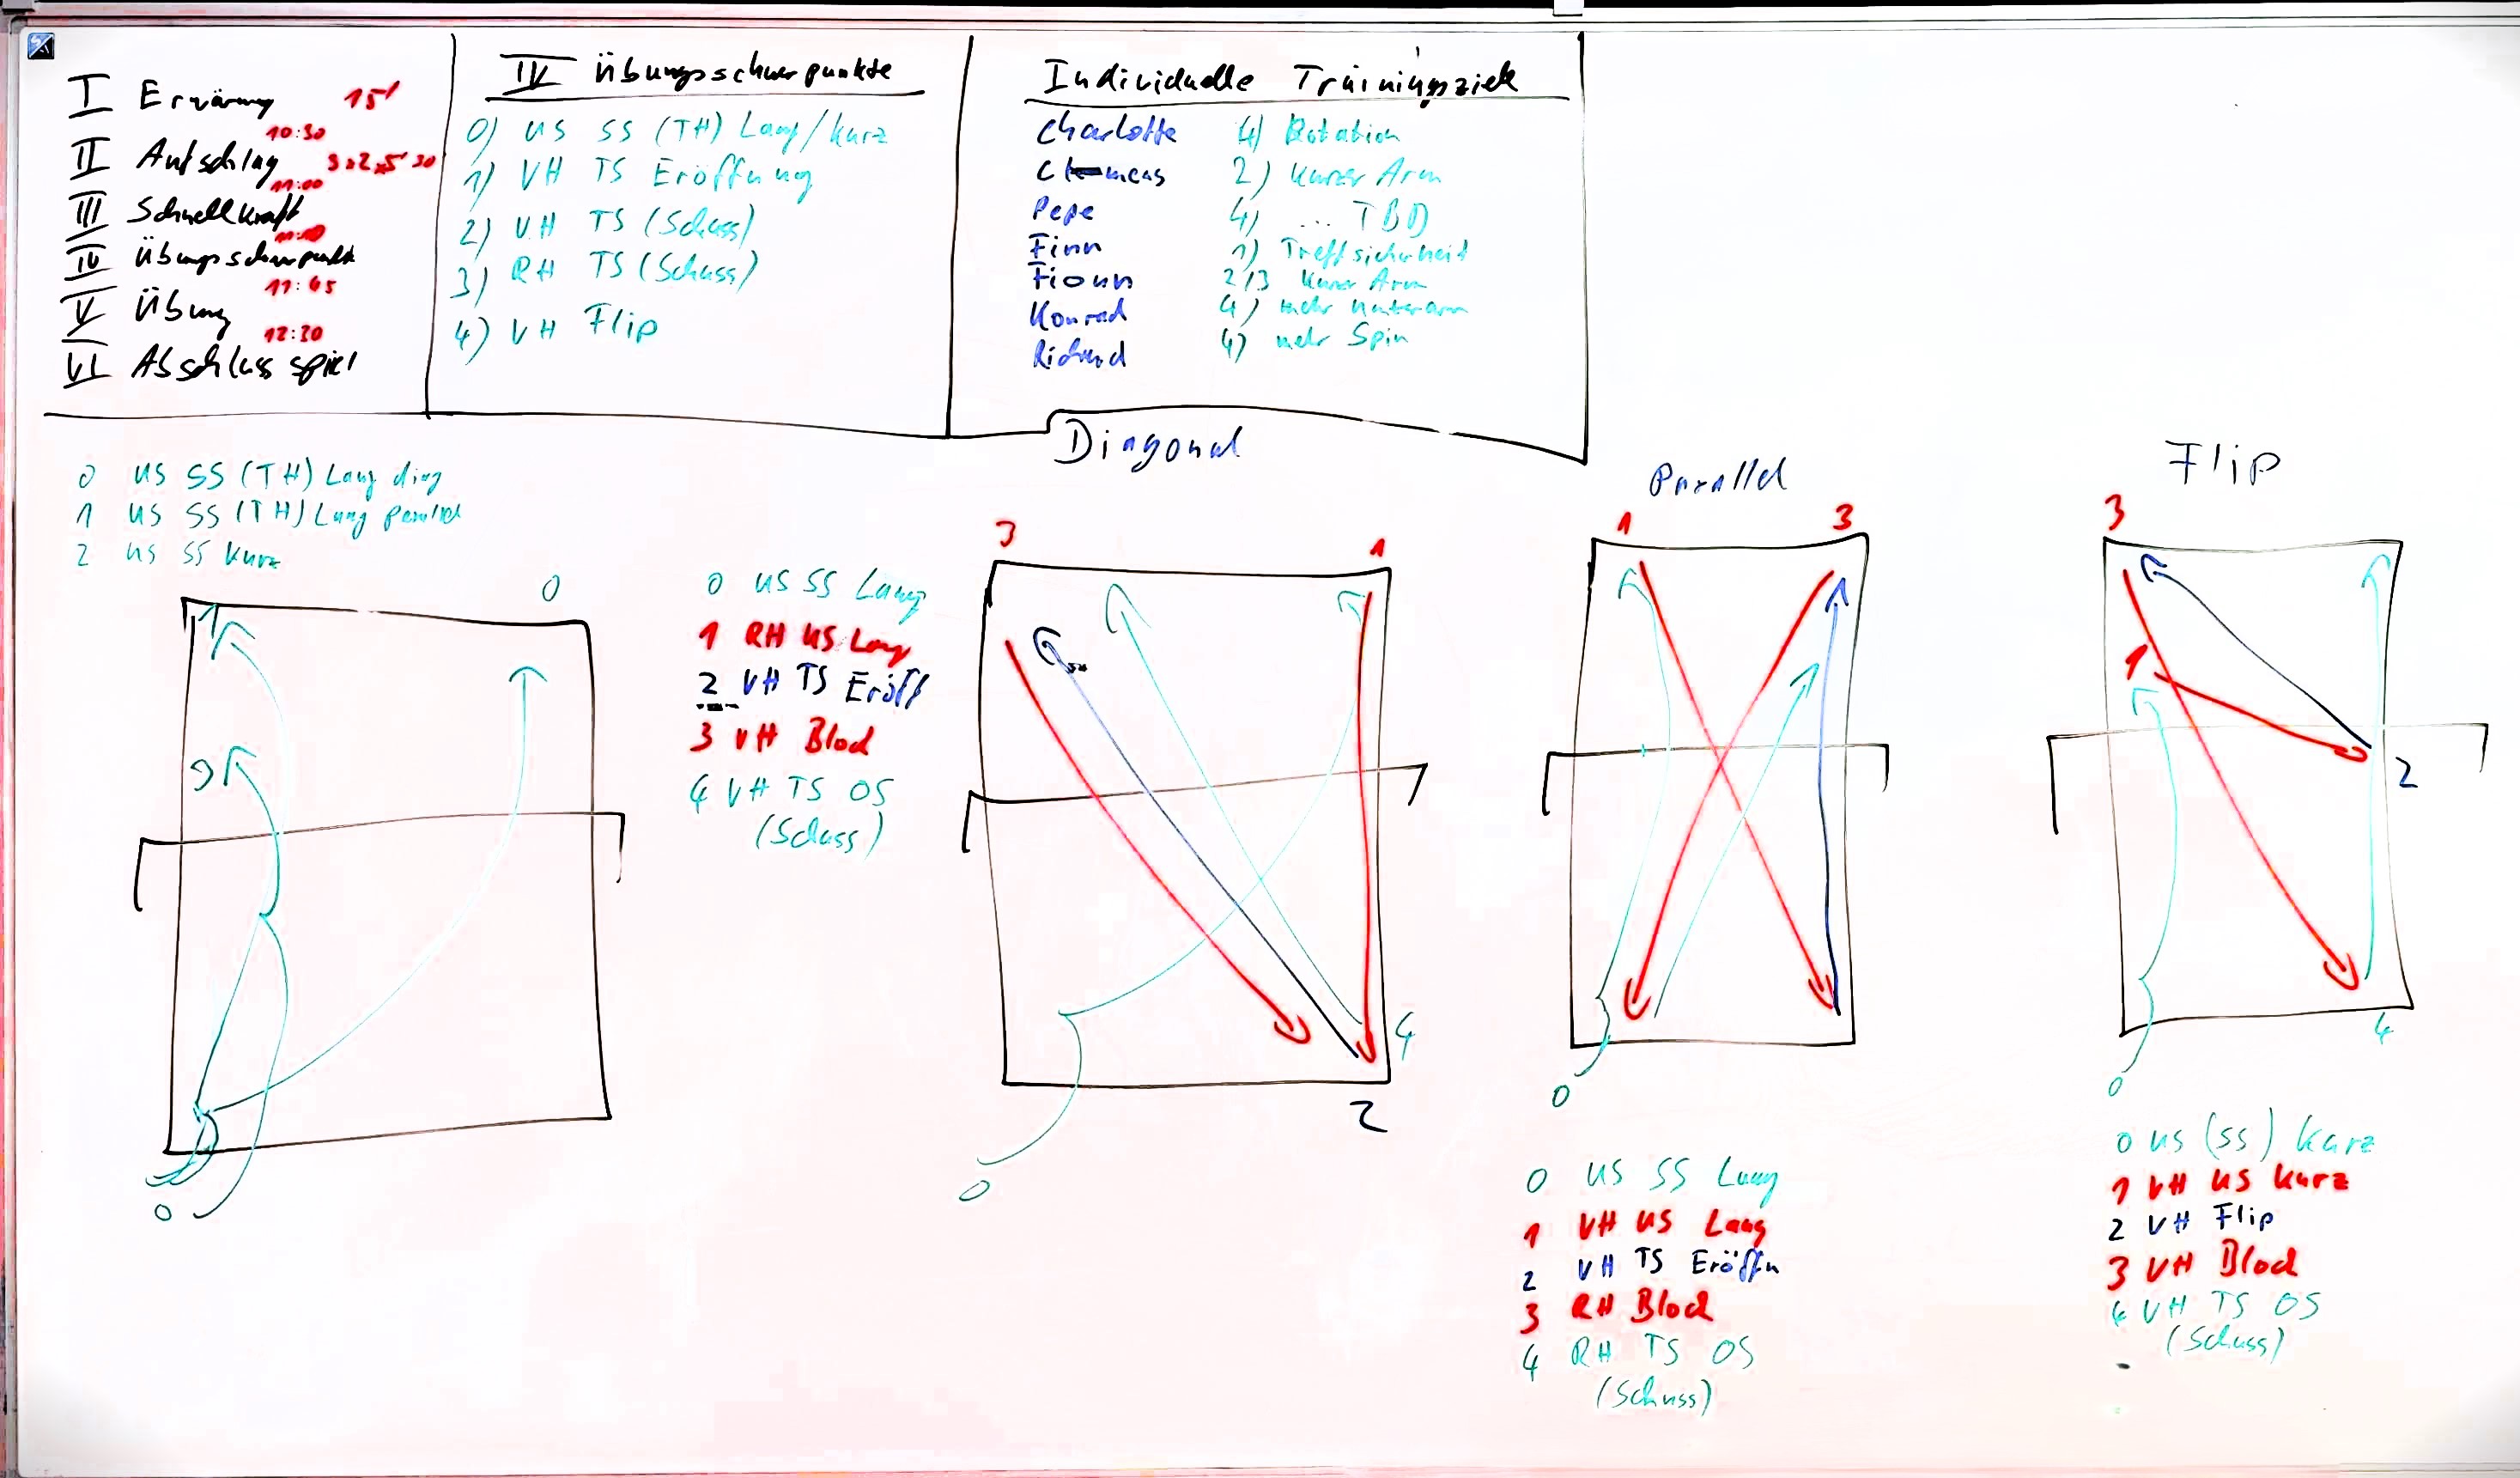 I Erwärmung 15'
10:30
II Aufschlag 3x2x5' 30
11:00
III Schnellkraft
IV Übungsschwerpunkte
11:45
V Übung
12:30
VI Abschlussspiel
IV Übungsschwerpunkte
0) US SS (TH) Lang/kurz
1) VH TS Eröffnung
2) VH TS (Schuss)
3) RH TS (Schuss)
4) VH Flip
Individuelle Trainingsziele
Charlotte 4) Rotation
2) kurzer Arm
Pepe 4) ... TBD
Finn 1) Treffsicherheit
Fionn 2/3 kurzer Arm
Konrad 4) mehr Unterarm
Richard 4) mehr Spin
0 US SS (TH) Lang diag
1 US SS (TH) Lang parallel
2 US SS kurz
0
1
2
0
Diagonal
0 US SS Lang
1 RH US Lang
2 VH TS Eröff
3 VH Block
4 VH TS OS
(Schuss)
3 1
4
2
0
Parallel
1 3
0
0 US SS Lang
1 VH US Lang
2 VH TS Eröffn
3 RH Block
4 RH TS OS
(Schuss)
Flip
3
1
2
4
0
0 US (SS) kurz
1 VH US kurz
2 VH Flip
3 VH Block
4 VH TS OS
(Schuss)